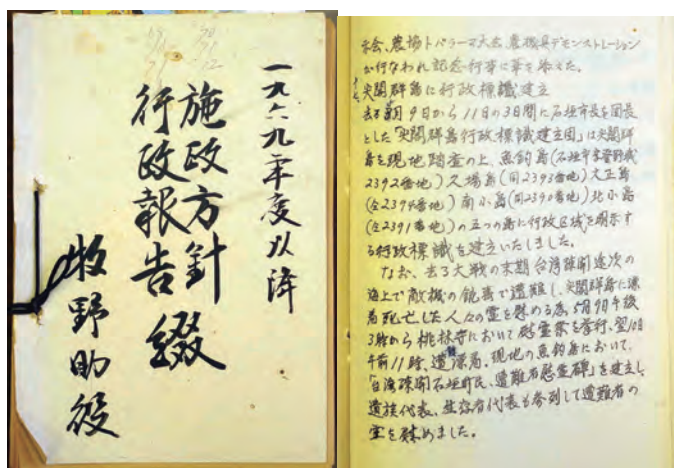 一九六九年度以降
施政方針
行政報告
綴
牧野助役
示会、農協トバラーマ大会、農機具デモンストレーション
が行なわれ記念行事に華を添えた。
尖閣群島に行政標識建立
9日から11日の3日間に石垣市長を団長
とした「尖閣群島行政標識建立団」は尖閣群
島を現地踏査の上、魚釣島(石垣市字登野城
2392番地)久場島(同2393番地)大正島
(仝2394番地)南小島(同2390番地)北小島
(仝2391番地)の五つの島に行政区域を明示す
る行政標識を建立いたしました。
なお、去る大戦の末期台湾疎開途次の
海上で敵機の銃撃で遭難し、尖閣群島に漂
着死亡した人々の霊を慰める為、5月9日午後
3時から桃林寺において慰霊祭を挙行、翌10日
午前11時、遭難漂着、現地の魚釣島において、
「台湾疎開石垣町民、遭難者慰霊碑」を建立し
遺族代表、生存者代表も参列して遭難者の
霊を慰めました。